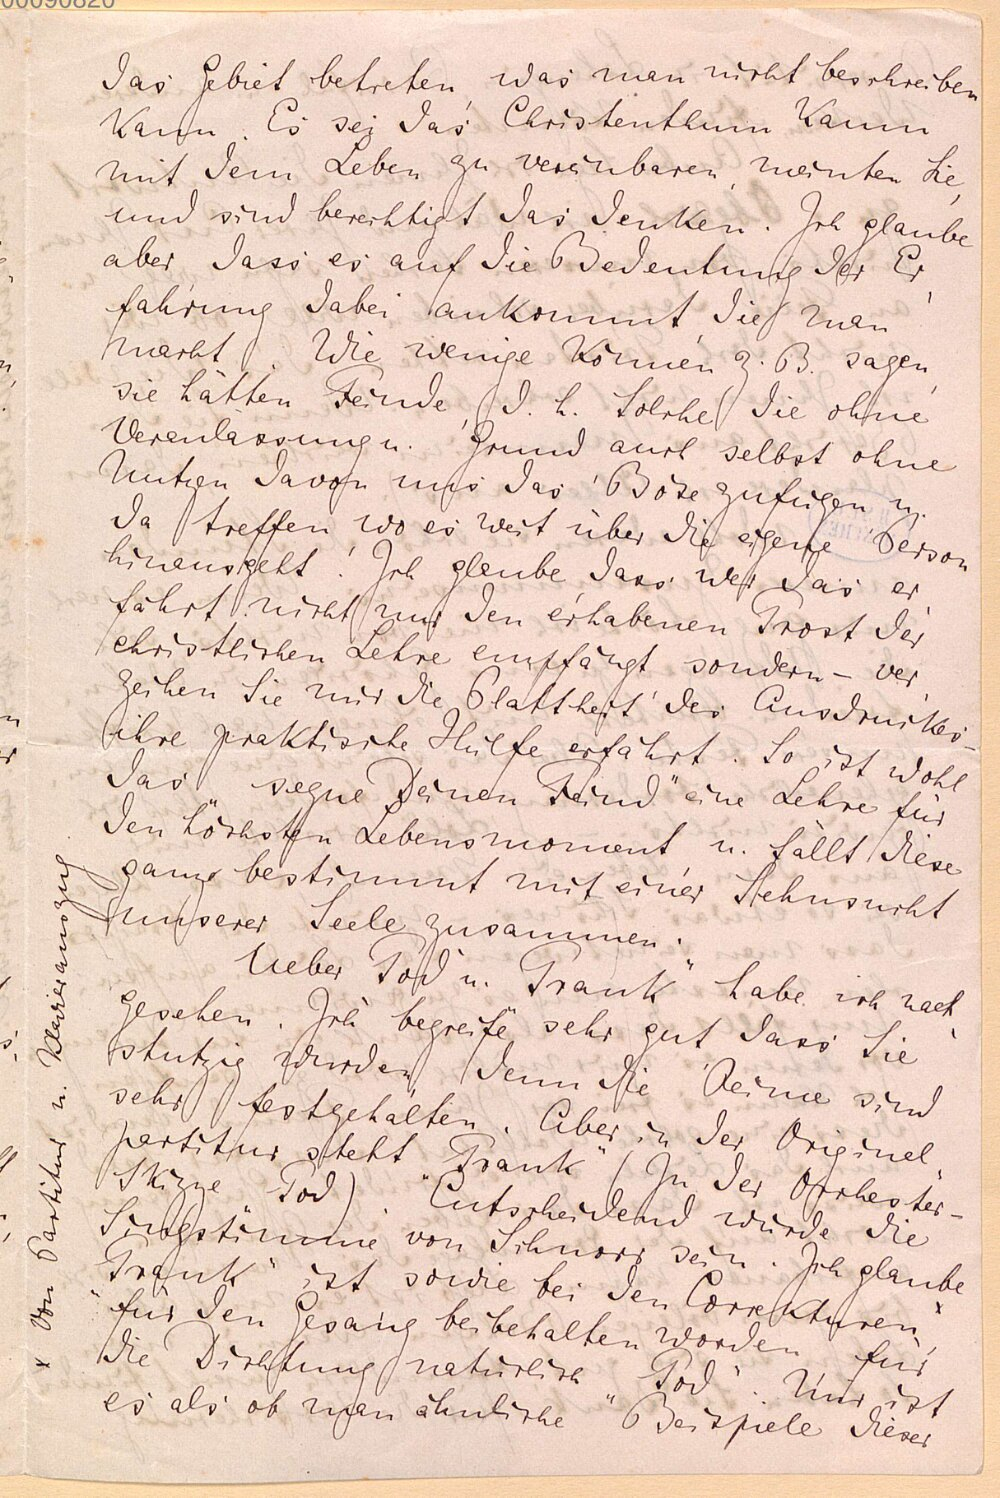 00090820
das Gebiet betreten was man nicht beschreiben
kann. Es sei das Christenthum kaum
mit dem Leben zu vereinbaren, meinten Sie,
und sind berechtigt das denken. Ich glaube
aber dass es auf die Bedeutung der Er,
fahrung dabei ankommt die man
macht. Wie wenige können z. B. sagen,
sie hätten Feinde, d. h. Solche die ohne
Veranlassung u. Grund auch selbst ohne
Nutzen davon uns das Böse zufügen u.
da treffen wo es weit über die eigene Person
hinausgeht! Ich glaube dass wer das er,
fährt nicht nur den erhabenen Trost der
christlichen Lehre empfängt sondern – ver,
zeihen Sie mir die Plattheit des Ausdruckes –
ihre praktische Hülfe erfährt. So ist wohl
das „segne Deinen Feind" eine Lehre für
den höchsten Lebensmoment u. fällt diese
ganz bestimmt mit einer Sehnsucht
unserer Seele zusammen.
Ueber Tod u. „Trank" habe ich nach,
gesehen. Ich begreife sehr gut dass Sie
stutzig wurden, denn die Reime sind
sehr festgehalten. Aber in der Original,
partitur steht „Trank" (In der Orchester-
Skizze Tod) Entscheidend würde die
Singstimme von Schnorr sein. Ich glaube
„Trank" ist sowie bei den Correkturen x
für den Gesang beibehalten worden, für
die Dichtung natürlich „Tod". Mir ist
es als ob man ähnliche Beispiele dieser
x Von Partitur u. Klavierauszug